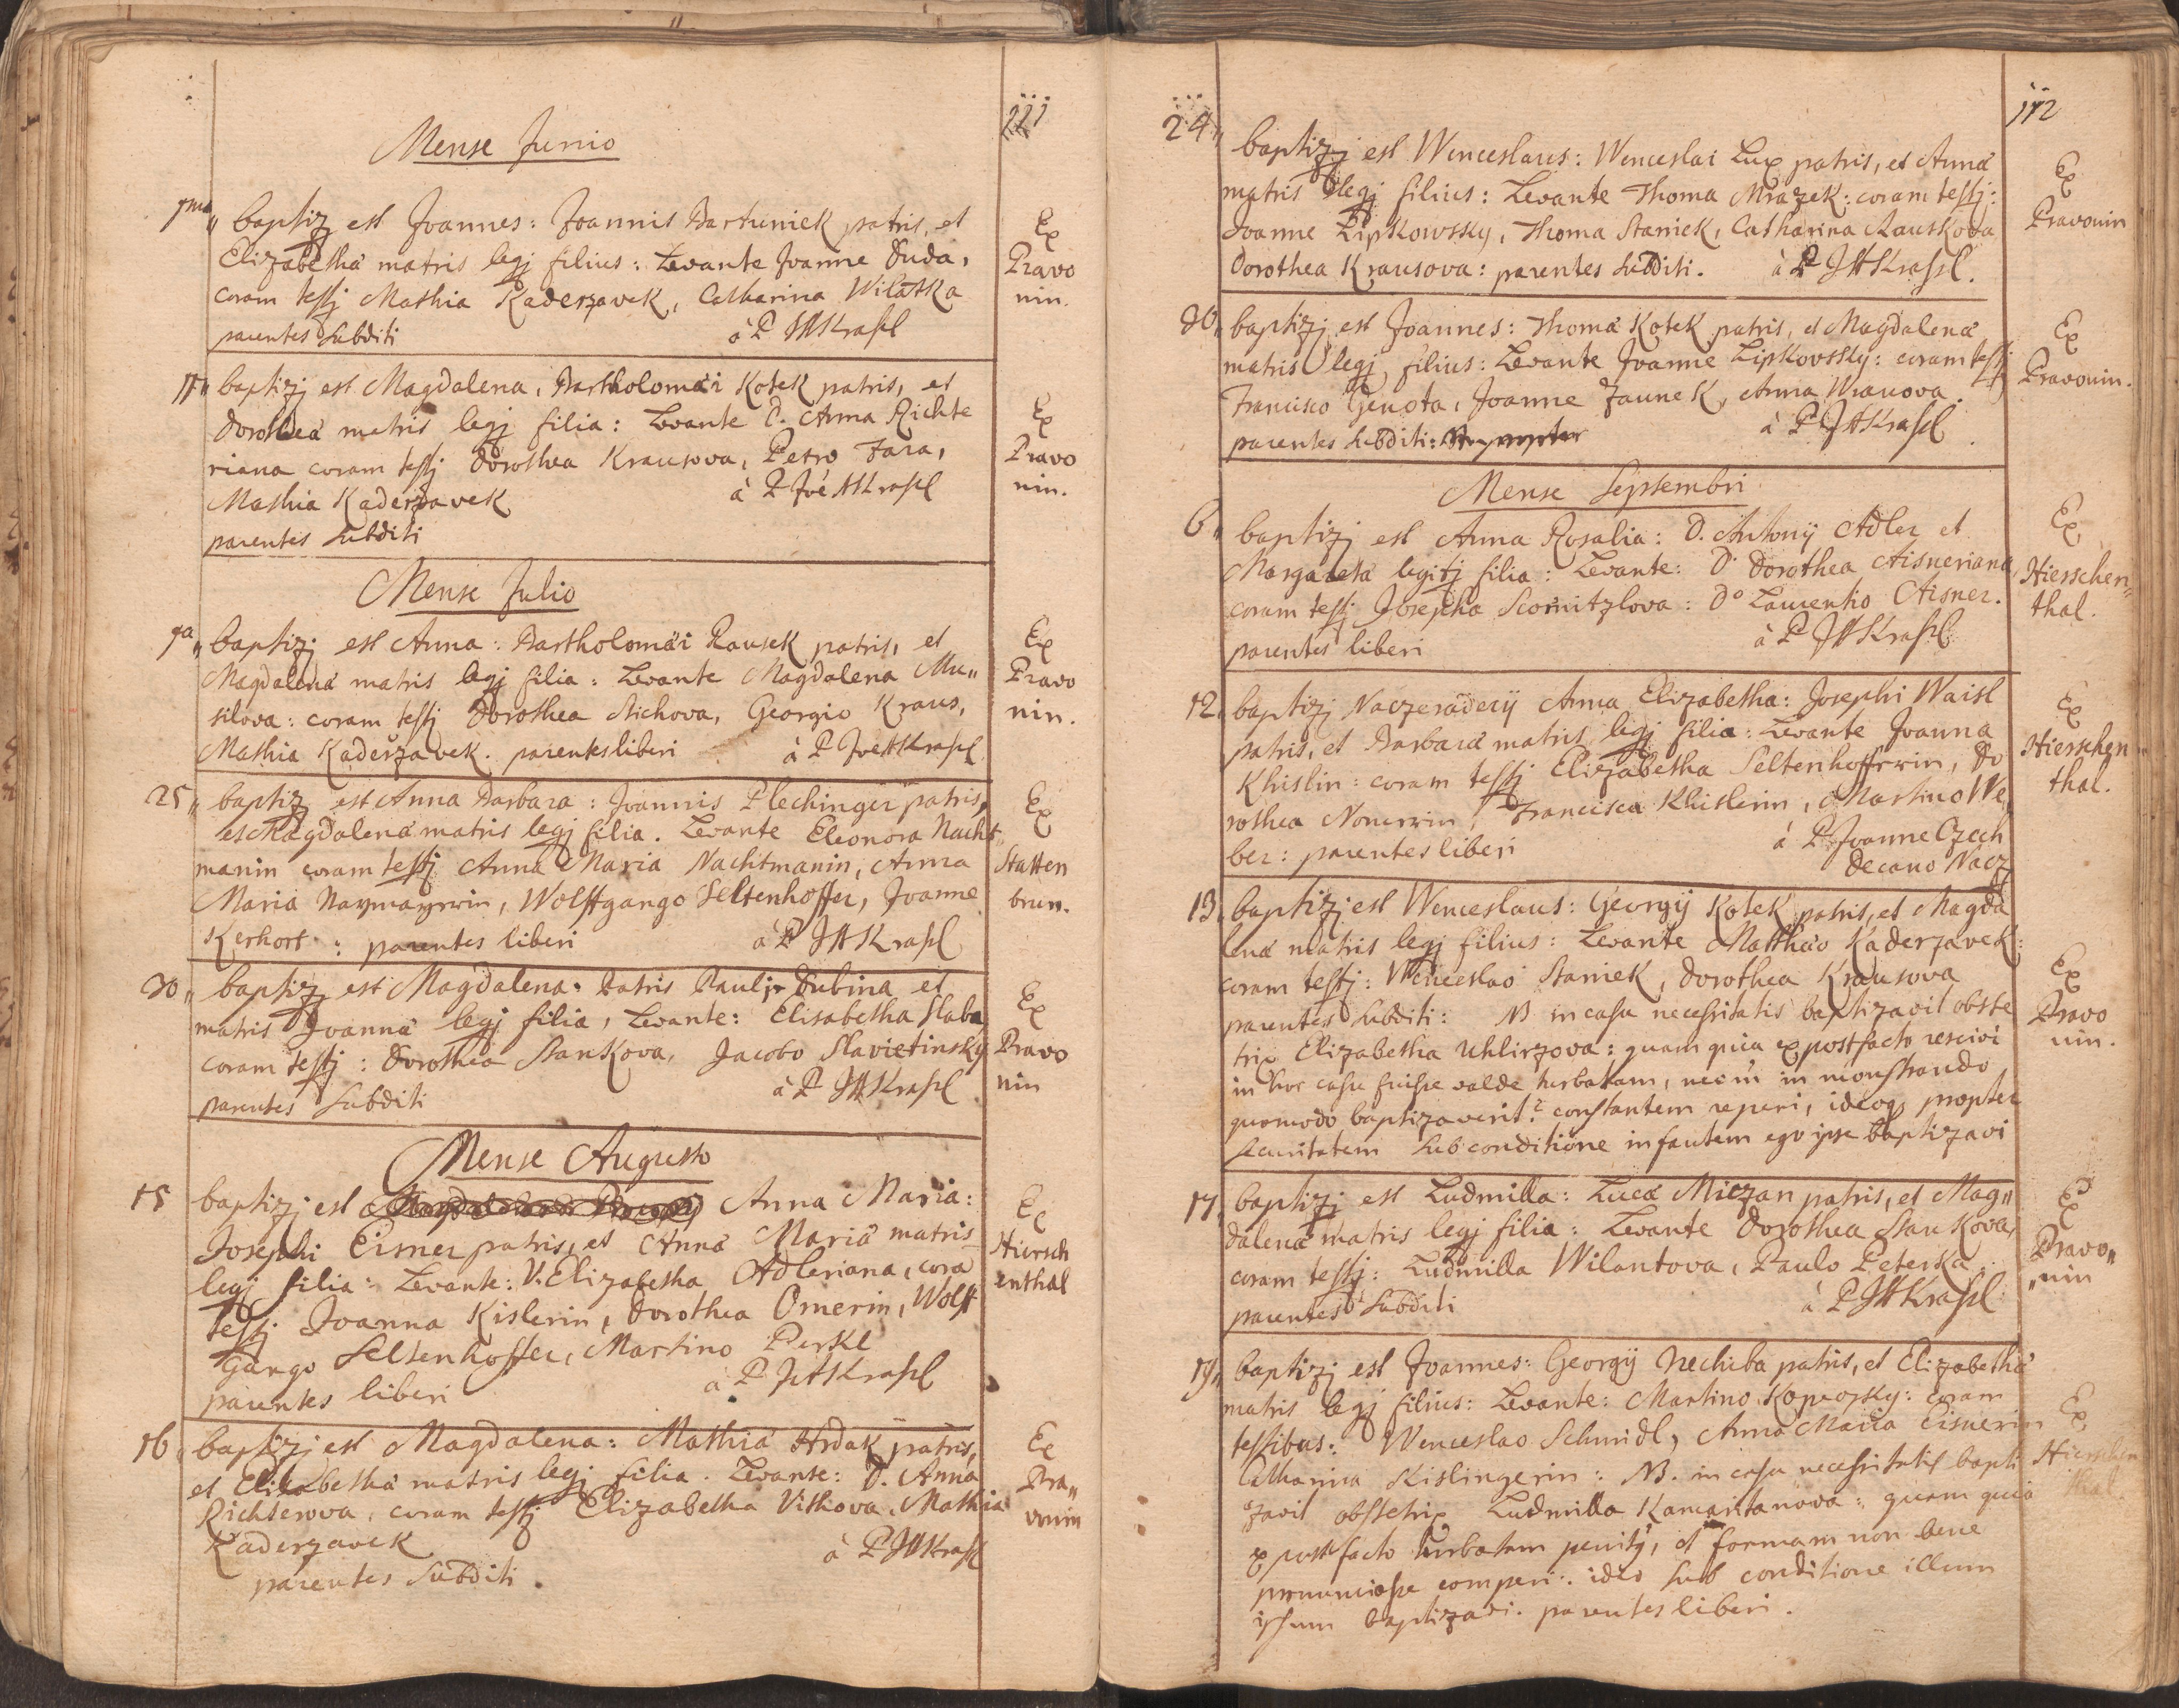 111
Mense Junio
7ma baptizj est Joannes: Joannis Bartuniek patris, et
Elizabetha matris legj filius: Levante Joanne Duda,
coram testj Mathia Kaderzavek, Catharina Wilatka
parentes subditi à P JHKrasl
Ex
Pravo
nin.
17 baptizj est Magdalena, Bartholomæi Kotek patris, et
Dorotheá matris legj filia: Levante D. Anna Richte
riana coram testj Dorothea Krausova, Petro Fara,
Mathia Kaderzavek à P Joê HKrasl
parentes subditi
Ex
Pravo
nin.
Mense Julio
7a baptizj est Anna: Bartholomæi Rausek patris, et
Magdalená matris legj filia: Levante Magdalena Mu„
silova: coram testj Dorothea Nichova, Georgio Kraus,
Mathia Kaderzavek. parentes liberi à P JoeHKrasl
Ex
Pravo
nin.
25 baptizj est Anna Barbara: Joannis Plechinger patris,
et Magdalená matris legj filia. Levante Eleonora Nacht„
manin coram testj Anna Maria Nachtmanin, Anna
Maria Naymayrrin, Wolffgango Seltenhoffer, Joanne
Kerhort: parentes liberi à P JHKrasl
Ex
Statten
brun.
30 baptizj est Magdalena: Patris Paulj Dubina et
matris Joanná legj filia, Levante: Elisabetha Slaba
coram testj: Dorothea Stankova, Jacobo Slavietinsky
parentes subditi à P JHKrasl
Ex
Pravo
nin
Mense Augusto
15 baptizj est Anna Maria:
Josephi Eisner patris, et Anná Mariá matris
legj filia: Levante: V. Elizabetha Adleriana, cora
testj Joanna Kislerin, Dorothea Omerin, Wolff
Gango Seltenhoffer, Martino Perkl
parentes liberi à P JHKrasl
Ex
Hirsch
enthal
16 baptizj est Magdalena: Mathiá Hrdak patris,
et Elizabethá matris legj filia. Levante: D. Anna
Richterova, coram testj Elizabetha Vitkova, Mathia
Kaderzavek à P JHKrasl
parentes subditi.
Ex
Pra„
vonin
112
24 baptizj est Wenceslaus: Wenceslai Lux patris, et Anná
matris legj filius: Levante Thoma Mrazek: coram testj:
Joanne Lipkowsky, Thoma Staniek, Catharina Rauskova
Dorothea Krausova: parentes subditi. à P JHKrasl.
Ex
Pravonin
30 baptizj est Joannes: Thomá Kotek patris, et Magdalená
matris legj filius: Levante Joanne Lipkovsky: coram testj
Francisco Genota, Joanne Jaunek, Anna Wranova.
parentes subditi: à P JHKrasl
Ex
Pravonin.
Mense Septembri
6 baptizj est Anna Rosalia: D. Antonij Adler et
Margaretá legitj filia: Levante: D. Dorothea Aisneriana,
coram testj Josepha Scornitzlova: Do Laurentio Aisner.
parentes liberi à P JHKrasl
Ex
Hierschen„
thal.
12 baptizj Naczeraderij Anna Elizabetha: Josephi Waisl
patris, et Barbará matris legj filia: Levante Joanna
Khislin: coram testj Elizabetha Seltenhoffrrin, Do
rothea Nonerrin, Francisca Khislerin, Martino We„
ber: parentes liberi à P Joanne Czech
Decano Nacz
Ex
Hierschen„
thal.
13 baptizj est Wenceslaus: Georgij Kotek patris, et Magda
lená matris legj filius: Levante Matthæo Kaderzavek:
coram testj: Wenceslao Staniek, Dorothea Krausova
parentes subditi: NB in casu necessitatis baptizavit obste
trix Elizabetha Uhlirzova: quam quia ex postfacto rescivi
in hoc casu fuisse valde turbatam, nec in in monstrando
quomodo baptizaverit? constantem reperi, ideoq propter
securitatem sub conditione infantem ego ipse baptizavi
Ex
Pravo
nin.
17 baptizj est Ludmilla: Lucá Miczan patris, et Mag„
dalená matris legj filia: Levante Dorothea Stankova,
coram testj: Ludmilla Wilantova, Paulo Peterka.
parentes subditi à P JHKrasl
Ex
Pravo„
„nin
19 baptizj est Joannes: Georgij Nechiba patris, et Elizabethá
matris legj filius: Levante: Martino Koprozsky: coram
testibus: Wenceslao Schmidl, Anna Maria Eisnerin
Catharina Kislingerin: NB. in casu necessitatis bapti
zavit obstetrix Ludmilla Kamaritanova: quam quia
ex postfacto turbatam penitj, et formam non bene
pronunciasse comperi: ideo sub conditione illum
ipsum baptizavi. parentes liberi.
Ex
Hierschen
thal.